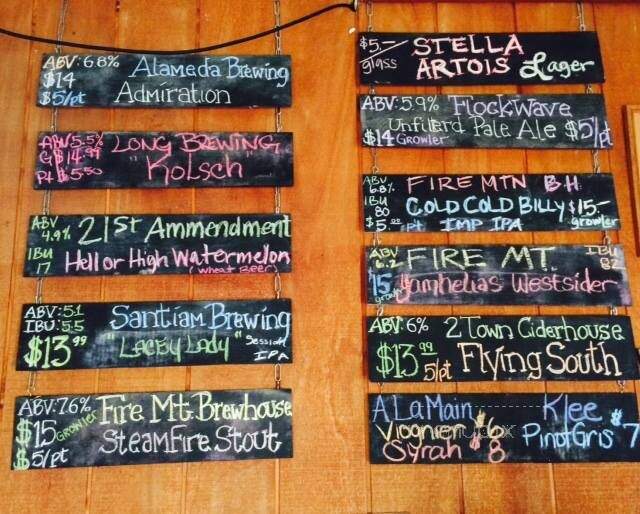 ABV: 6.8% Alameda Brewing
$14
$5/pt Admiration
ABV 5.5% LONG BREWING
G $14.99 "Kolsch"
Pt $5.50
ABV 4.9% 21st Ammendment
IBU 17 Hell or High Watermelon
(wheat Beer)
ABV: 5.1 Santiam Brewing
IBU: 5.5
$13.99 "Lacey Lady" Session IPA
ABV: 7.6% Fire Mt. Brewhouse
$15 GROWLER SteamFire Stout
$5/pt
$5.- glass STELLA ARTOIS Lager
ABV: 5.9% FLOCKWAVE
Unfilterd Pale Ale $5/pt
$14 Growler
ABV 6.8% FIRE MTN B.H.
IBU 80 COLD COLD BILLY $15.- growler
$5.00 pt IMP IPA
ABV 6.2 FIRE MT. IBU 82
15 growler Westsider
ABV: 6% 2 Town Ciderhouse
$13.99 5/pt Flying South
A La Main Klee
Viognier $6 Pinot Gris $7
Syrah $8